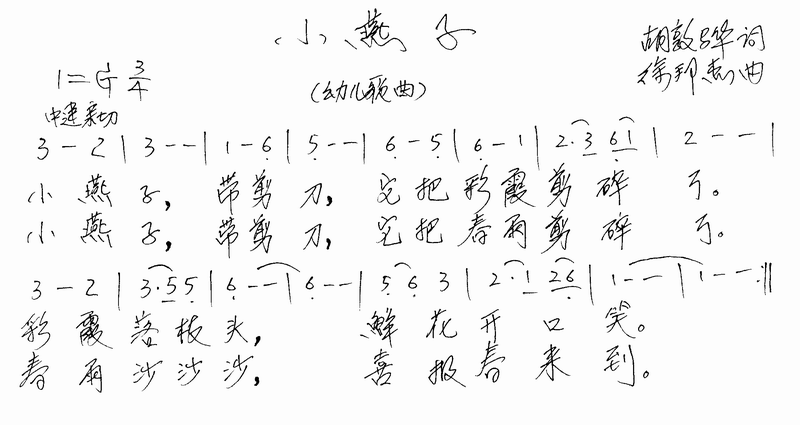 小燕子
胡敦骅 词
1=G 3/4
(幼儿歌曲)
徐邦杰 曲
中速亲切
3 - 2 | 3 - - | 1 - 6̣ | 5̣ - - | 6̣ - 5̣ | 6̣ - 1 | 2· 3 6̣ 1 | 2 - - |
小燕子,带剪刀,它把彩霞剪碎了。
小燕子,带剪刀,它把春雨剪碎了。
3 - 2 | 3· 5 5 | 6̣ - - | 6̣ - - | 5̣ 6̣ 3 | 2· 1 2 6̣ | 1 - - | 1 - - :||
彩霞落枝头,鲜花开口笑。
春雨沙沙沙,喜报春来到。